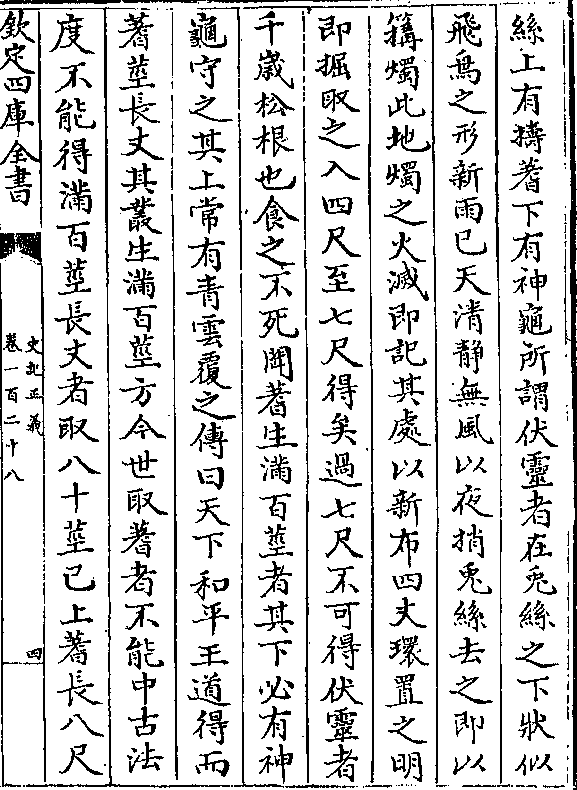 絲上有擣蓍下有神龜所謂伏靈者在兎絲之下狀似
飛鳥之形新雨已天清靜無風以夜捎兎絲去之即以
篝燭此地燭之火滅即記其處以新布四丈環置之明
即掘取之入四尺至七尺得矣過七尺不可得伏靈者
千歲松根也食之不死聞蓍生滿百莖者其下必有神
龜守之其上常有青雲覆之傳曰天下和平王道得而
蓍莖長丈其叢生滿百莖方今世取蓍者不能中古法
度不能得滿百莖長丈者取八十莖已上蓍長八尺
欽定四庫全書
史記正義
卷一百二十八
四